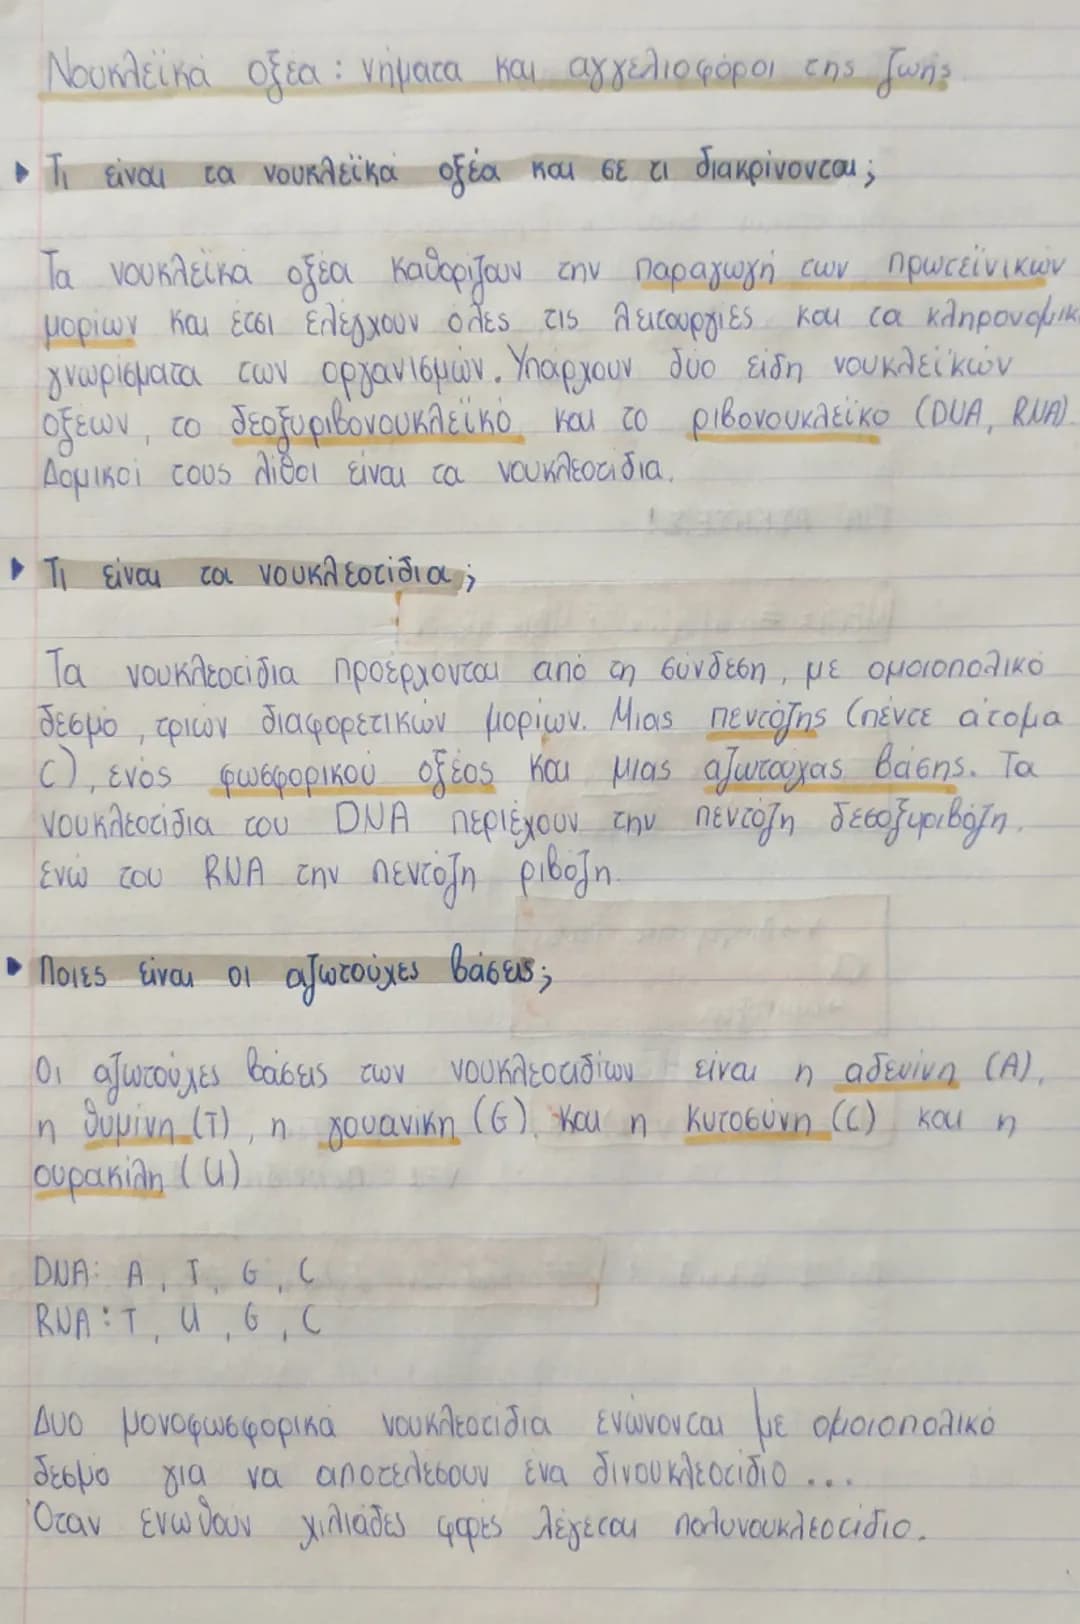 Νουκλεϊκά οξέα: νήματα και αγγελιοφόροι της ζωής
Τι είναι τα νουκλεϊκά οξέα και σε τι διακρίνονται;
Τα νουκλεϊκά οξέα καθορίζουν την παραγωγή των πρωτεϊνικών
μορίων και έτσι ελέγχουν όλες τις λειτουργίες και τα κληρονομικ
γνωρίσματα των οργανισμών. Υπάρχουν δύο είδη νουκλεϊκών
οξέων, το δεοξυριβονουκλεϊκό και το ριβονουκλεϊκό (DNA, RNA).
Δομικοί τους λίθοι είναι τα νουκλεοτίδια.
Τι είναι τα νουκλεοτίδια;
Τα νουκλεοτίδια προέρχονται από τη σύνδεση, με ομοιοπολικό
δεσμό, τριών διαφορετικών μορίων. Μιας πεντόζης (πέντε άτομα
C), ενός φωσφορικού οξέος και μιας αζωτούχας βάσης. Τα
νουκλεοτίδια του DNA περιέχουν την πεντόζη δεσοξυριβόζη.
ενώ του RNA την πεντόζη ριβόζη.
Ποιες είναι οι αζωτούχες βάσεις;
Οι αζωτούχες βάσεις των νουκλεοτιδίων είναι η αδενίνη (A),
η θυμίνη (T), η γουανίκη (G), και η κυτοσύνη (C) και η
ουρακίλη (U)
DNA: A, T, G, C
RNA: T, U, G, C
Δυο μονοφωσφορικά νουκλεοτίδια ενώνονται με ομοιοπολικό
δεσμό για να αποτελέσουν ένα δινουκλεοτίδιο...
Όταν ενωθούν χιλιάδες φορές λέγεται πολυνουκλεοτίδιο.